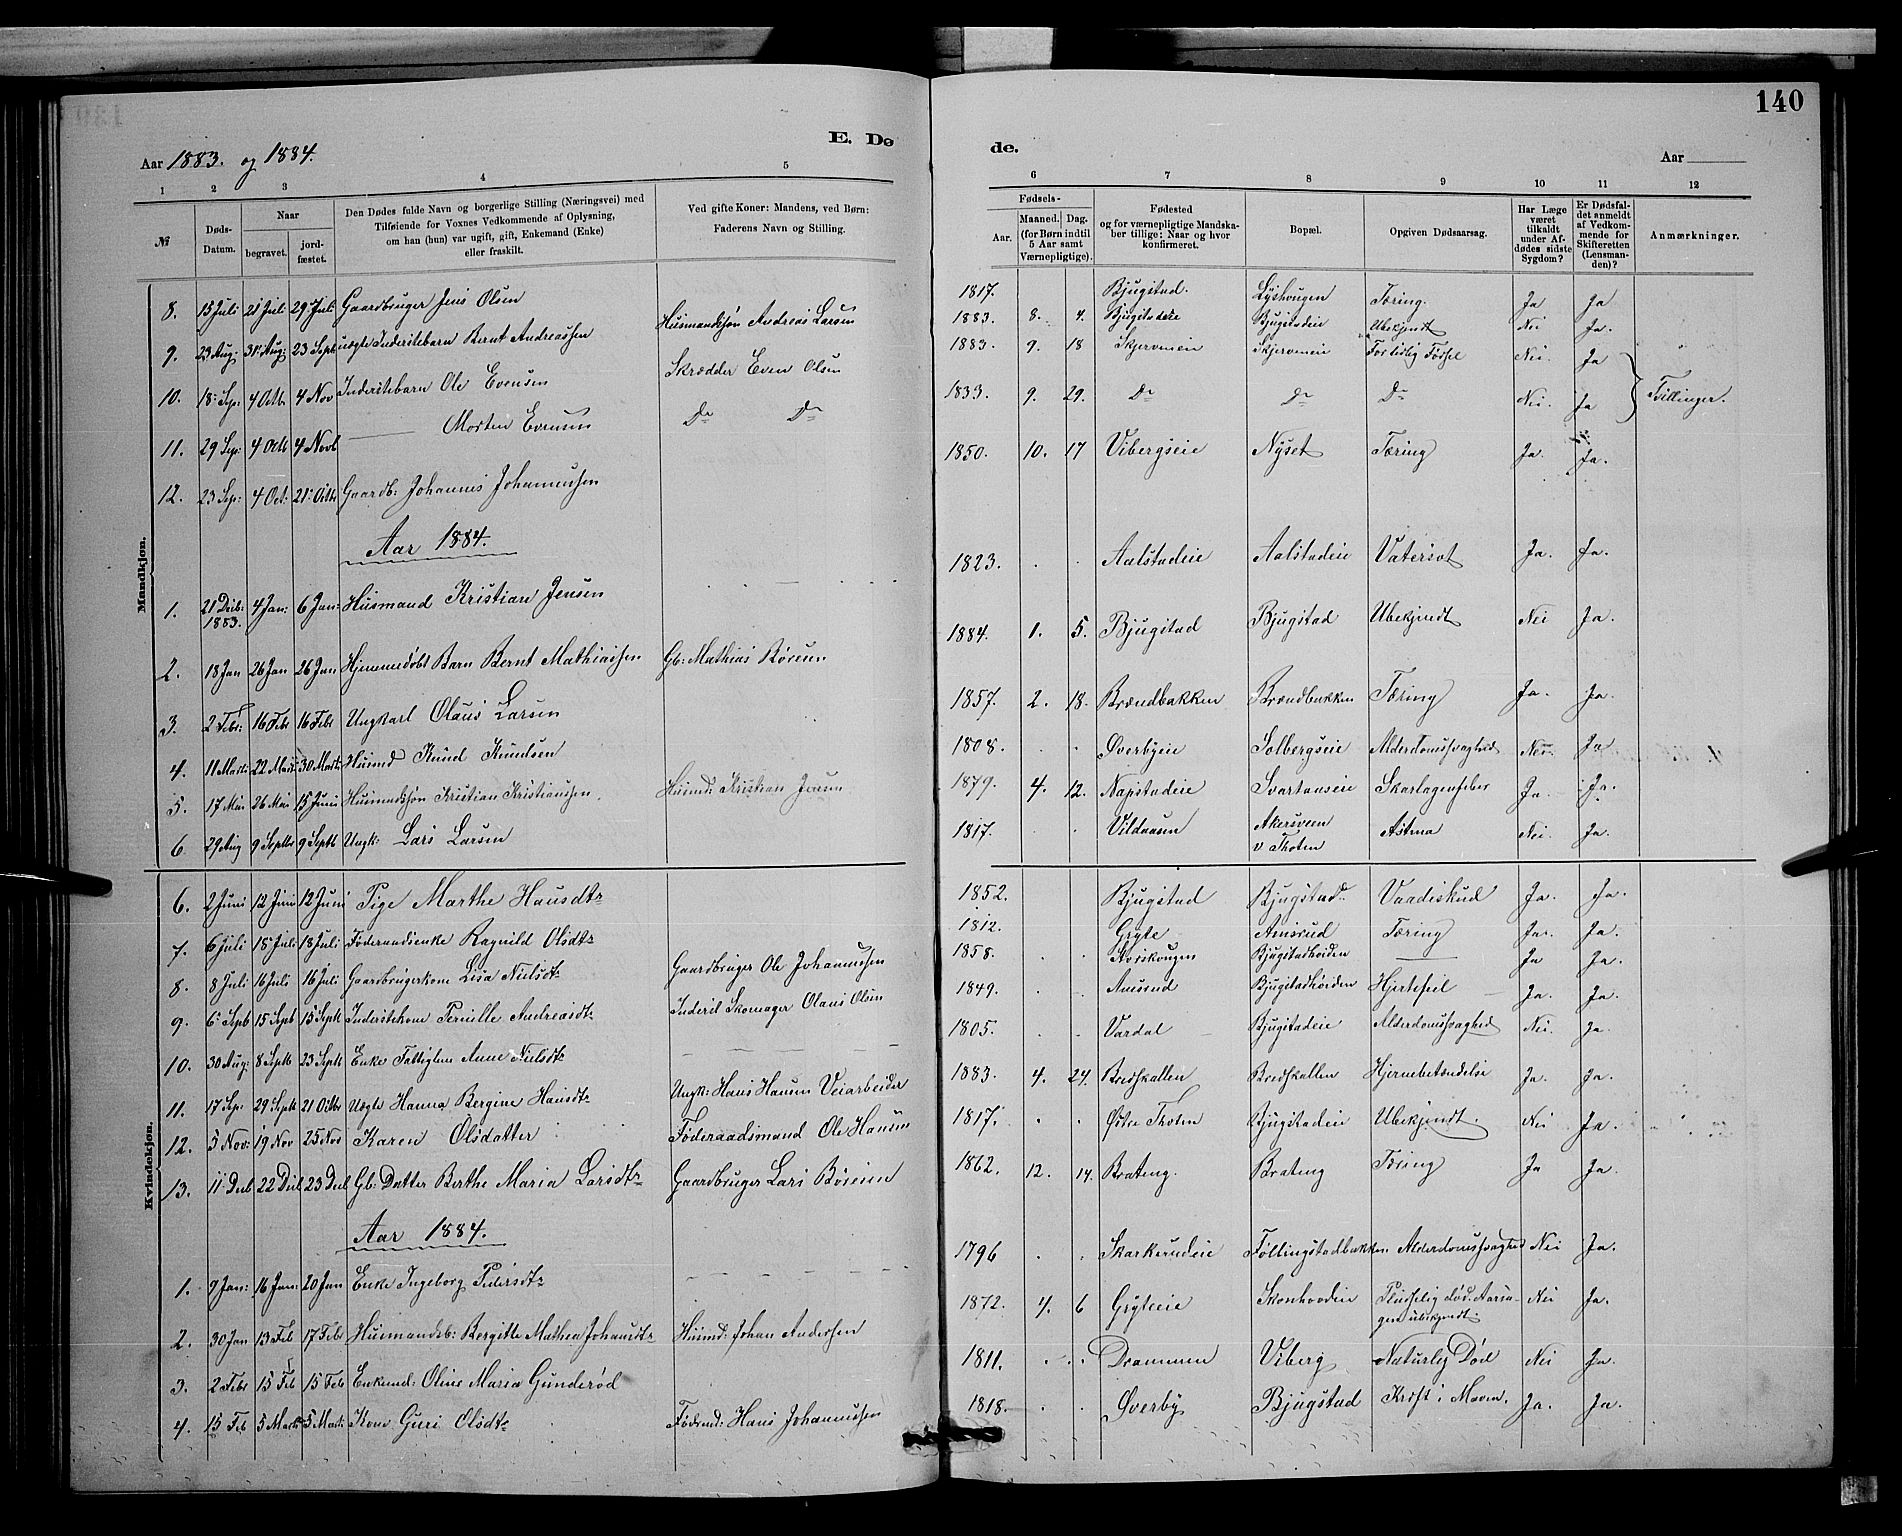 140
E. Dø
de.
Aar 1883. og 1884.
Aar
1 2 3 4 5
6 7 8 9 10 11 12
№
Døds-Datum.
Naar
begravet.
jord-fæstet.
Den Dødes fulde Navn og borgerlige Stilling (Næringsvei) med
Tilføiende for Voxnes Vedkommende af Oplysning,
om han (hun) var ugift, gift, Enkemand (Enke)
eller fraskilt.
Ved gifte Koner: Mandens, ved Børn:
Faderens Navn og Stilling.
Fødsels-
Aar.
Maaned. Dag.
(for Børn indtil
5 Aar samt
Værnepligtige).
Fødested
og for værnepligtige Mandska-
ber tillige: Naar og hvor
konfirmeret.
Bopæl.
Opgiven Dødsaarsag.
Har Læge
været
tilkaldt
under Af-
dødes sidste
Sygdom?
Er Dødsfal-
det anmeldt
af Vedkom-
mende for
Skifteretten
(Lensman-
den)?
Anmærkninger.
Mandkjøn.
8. 15 Juli 21 Juli 29 Juli Gaardbruger Jens Olsen
1817. Bjugstad. Lyshougen Tæring. Ja Ja
9. 23 Aug: 31 Aug: 23 Sept uægte Inderstebarn Bernt Andreassen Husmandsøn Andreas Larsen
1883. 8. 4. Bjugstadeie Bjugstadeie Ubekjendt Nei Ja.
10. 18 Sep: 4 Octb 4 Nov Inderstebarn Ole Evensen Skrædder Even Olsen
1883. 9. 18 Skjerveneie Skjerveneie For tidlig Fødsel Nei. Ja
11. 29 Sep: 4 Octb 4 Novb — Morten Evensen Do Do
1833. 9. 29. Do Do Do Nei. Ja } Tvillinger.
12. 23 Sep: 4 Oct: 21 Octb Gaardb: Johannes Johannessen
1850. 10. 17 Vibergseie Nyset Tæring Ja. Ja.
Aar 1884.
1. 21 Decb: 1883. 4 Jan: 6 Jan: Husmand Kristian Jensen
1823. Aalstadeie Aalstadeie Vatersot Ja. Ja.
2. 18 Jan 26 Jan 26 Jan Hjemmedøbt Barn Bernt Mathiassen Gb: Mathias Børesen
1884. 1. 5. Bjugstad Bjugstad Ubekjendt Nei Ja.
3. 2 Febr: 16 Febr 16 Febr Ungkarl Olaus Larsen
1857. 2. 18. Brændbakken Brændbakken Tæring Ja. Ja.
4. 11 Mart: 22 Mart 30 Mart: Husmd Knud Knudsen
1808. Øverbyeie Solbergseie Alderdomssvaghed Nei. Ja
5. 17 Mai 26 Mai 15 Juni Husmandsøn Kristian Kristiansen. Husmd: Kristian Jensen
1879. 4. 12. Napstadeie Svartaaseie Skarlagensfeber Ja. Ja.
6 29 Aug 9 Septbr 9 Septb Ungk: Lars Larsen
1817. Vildaasen Akersveen v Thoten Astma Nei. Ja.
Kvindekjøn.
6. 2 Juni 12 Juni 12 Juni Pige Marthe Hansdtr
1852. Bjugstad Bjugstad Vaadeskud Ja. Ja.
7. 6 Juli 18 Juli 18 Juli Føderaadsenke Ragnild Olsdtr
1812. Gryte Amsrud Tæring Ja. Ja.
8. 8 Juli 16 Juli 16 Juli Gaardbrugerkone Lisa Nielsdtr Gaardbruger Ole Johannessen
1858. Storskougen Bjugstadhøiden — Ja Ja.
9. 6 Septb 15 Septb 15 Septb Inderstekone Pernille Andreasdtr Inderst Skomager Olaus Olsen
1849. Amsrud Bjugstadhøiden Hjertefeil Ja. Ja.
10. 30 Aug: 8 Septb 23 Septb Enke Fattiglem Anne Nielsdtr
1805. Vardal Bjugstadeie Alderdomssvaghed Nei Ja.
11. 17 Sep. 29 Septb 21 Octbr Uægte Hanna Bergine Hansdtr Ungk: Hans Hansen Veiarbeider
1883. 4. 24. Bredskallen Bredskallen Hjernebetændelse Ja. Ja.
12. 5 Nov: 19 Nov 25 Nov Karen Olsdatter Føderaadsmand Ole Hansen
1817. Østre Thoten Bjugstadeie Ubekjendt. Nei Ja.
13. 11 Decb 22 Decb 23 Decb Gb: Datter Berthe Maria Larsdtr Gaardbruger Lars Børesen
1862. 12. 14. Brateng. Brateng Tæring Ja Ja.
Aar 1884.
1. 9 Jan: 16 Jan: 20 Jan Enke Ingeborg Pedersdtr
1796 Skarkerudeie Føllingstadbakken Alderdomssvaghed Nei Ja.
2. 30 Jan 13 Feb 17 Febr Husmandsb: Bergitte Mathea Johansdtr Husmd: Johan Andersen
1872. 4. 6 Gryteeie Skonhovdeie Pludselig død. Aarsa-
gen ubekjendt Nei Ja.
3. 2 Febr 15 Feb 15 Feb Enkemd: Oline Maria Gunderød
1811. Drammen Viberg Naturlig Død Nei Ja.
4. 15 Feb 5 Marts 5 Mart: Kone Guri Olsdtr Føderd: Hans Johannessen
1818. Øverby Bjugstad Kræft i Maven. Ja. Ja.